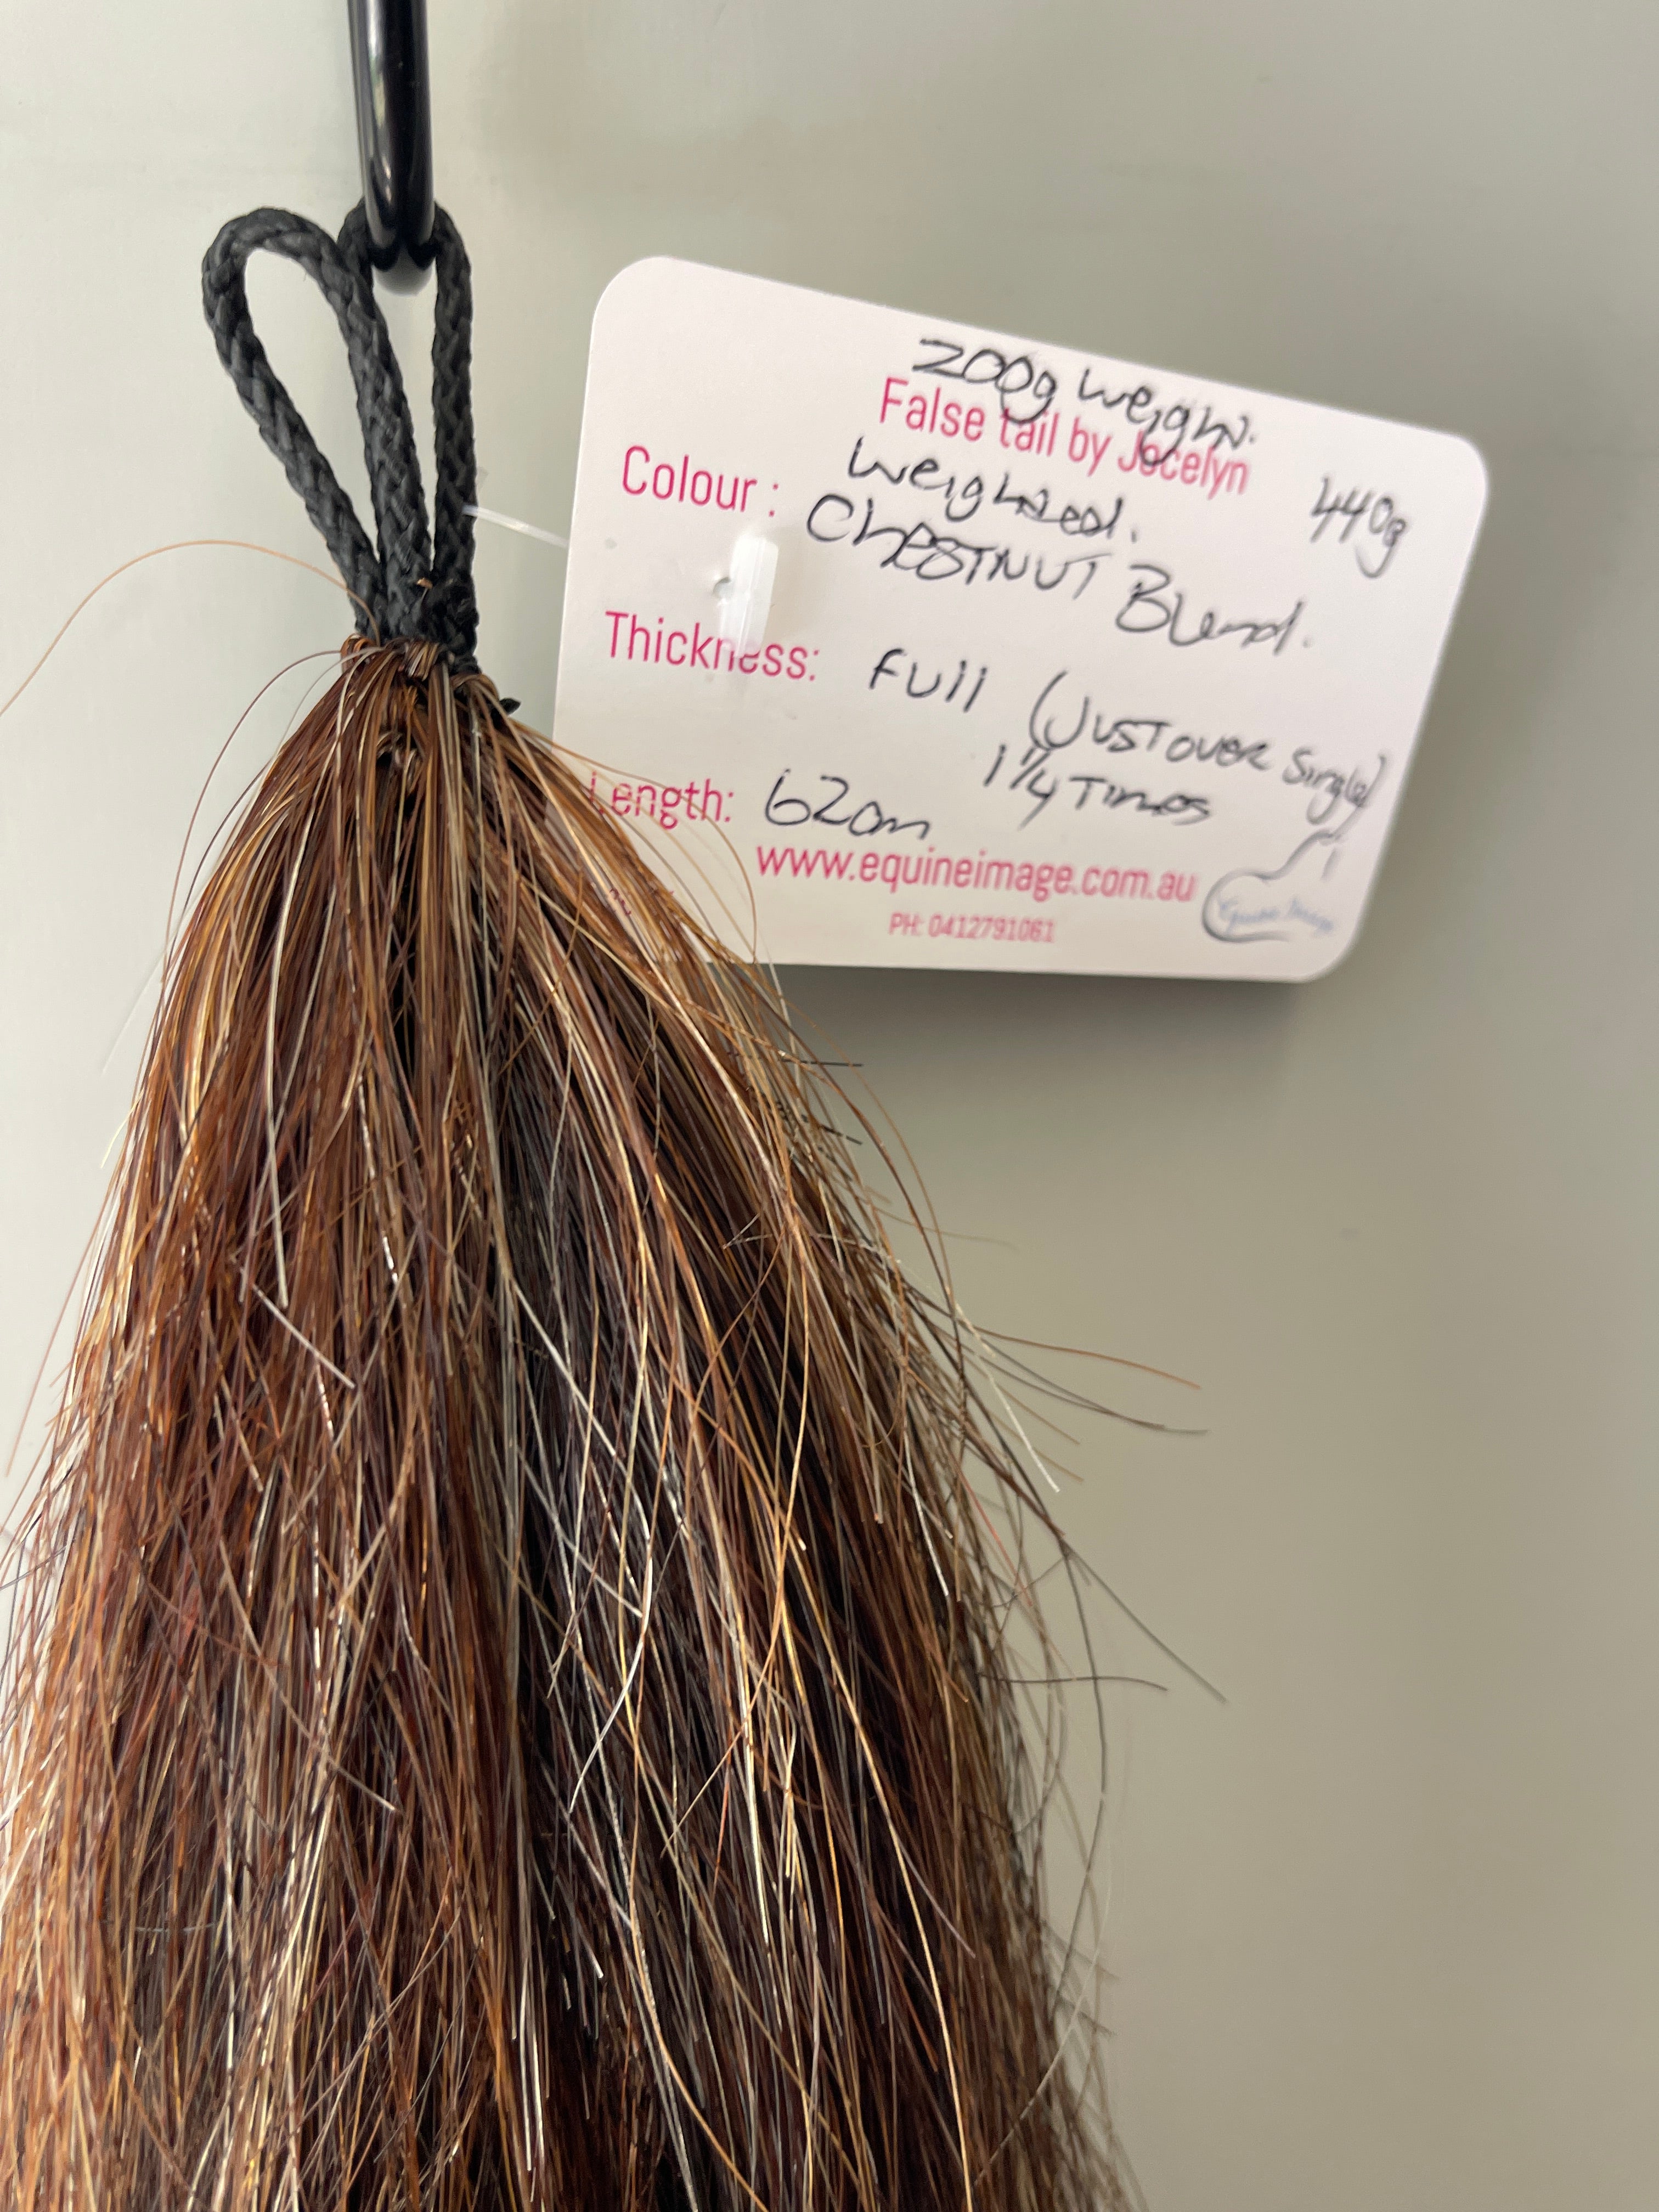 200g weight.
False tail by Jocelyn
440g
Weighted.
Colour: CHESTNUT Blend.
Thickness: Full (JUST OVER Single)
1 1/4 Times
Length: 62cm
www.equineimage.com.au
PH: 0412791061
Equine Image